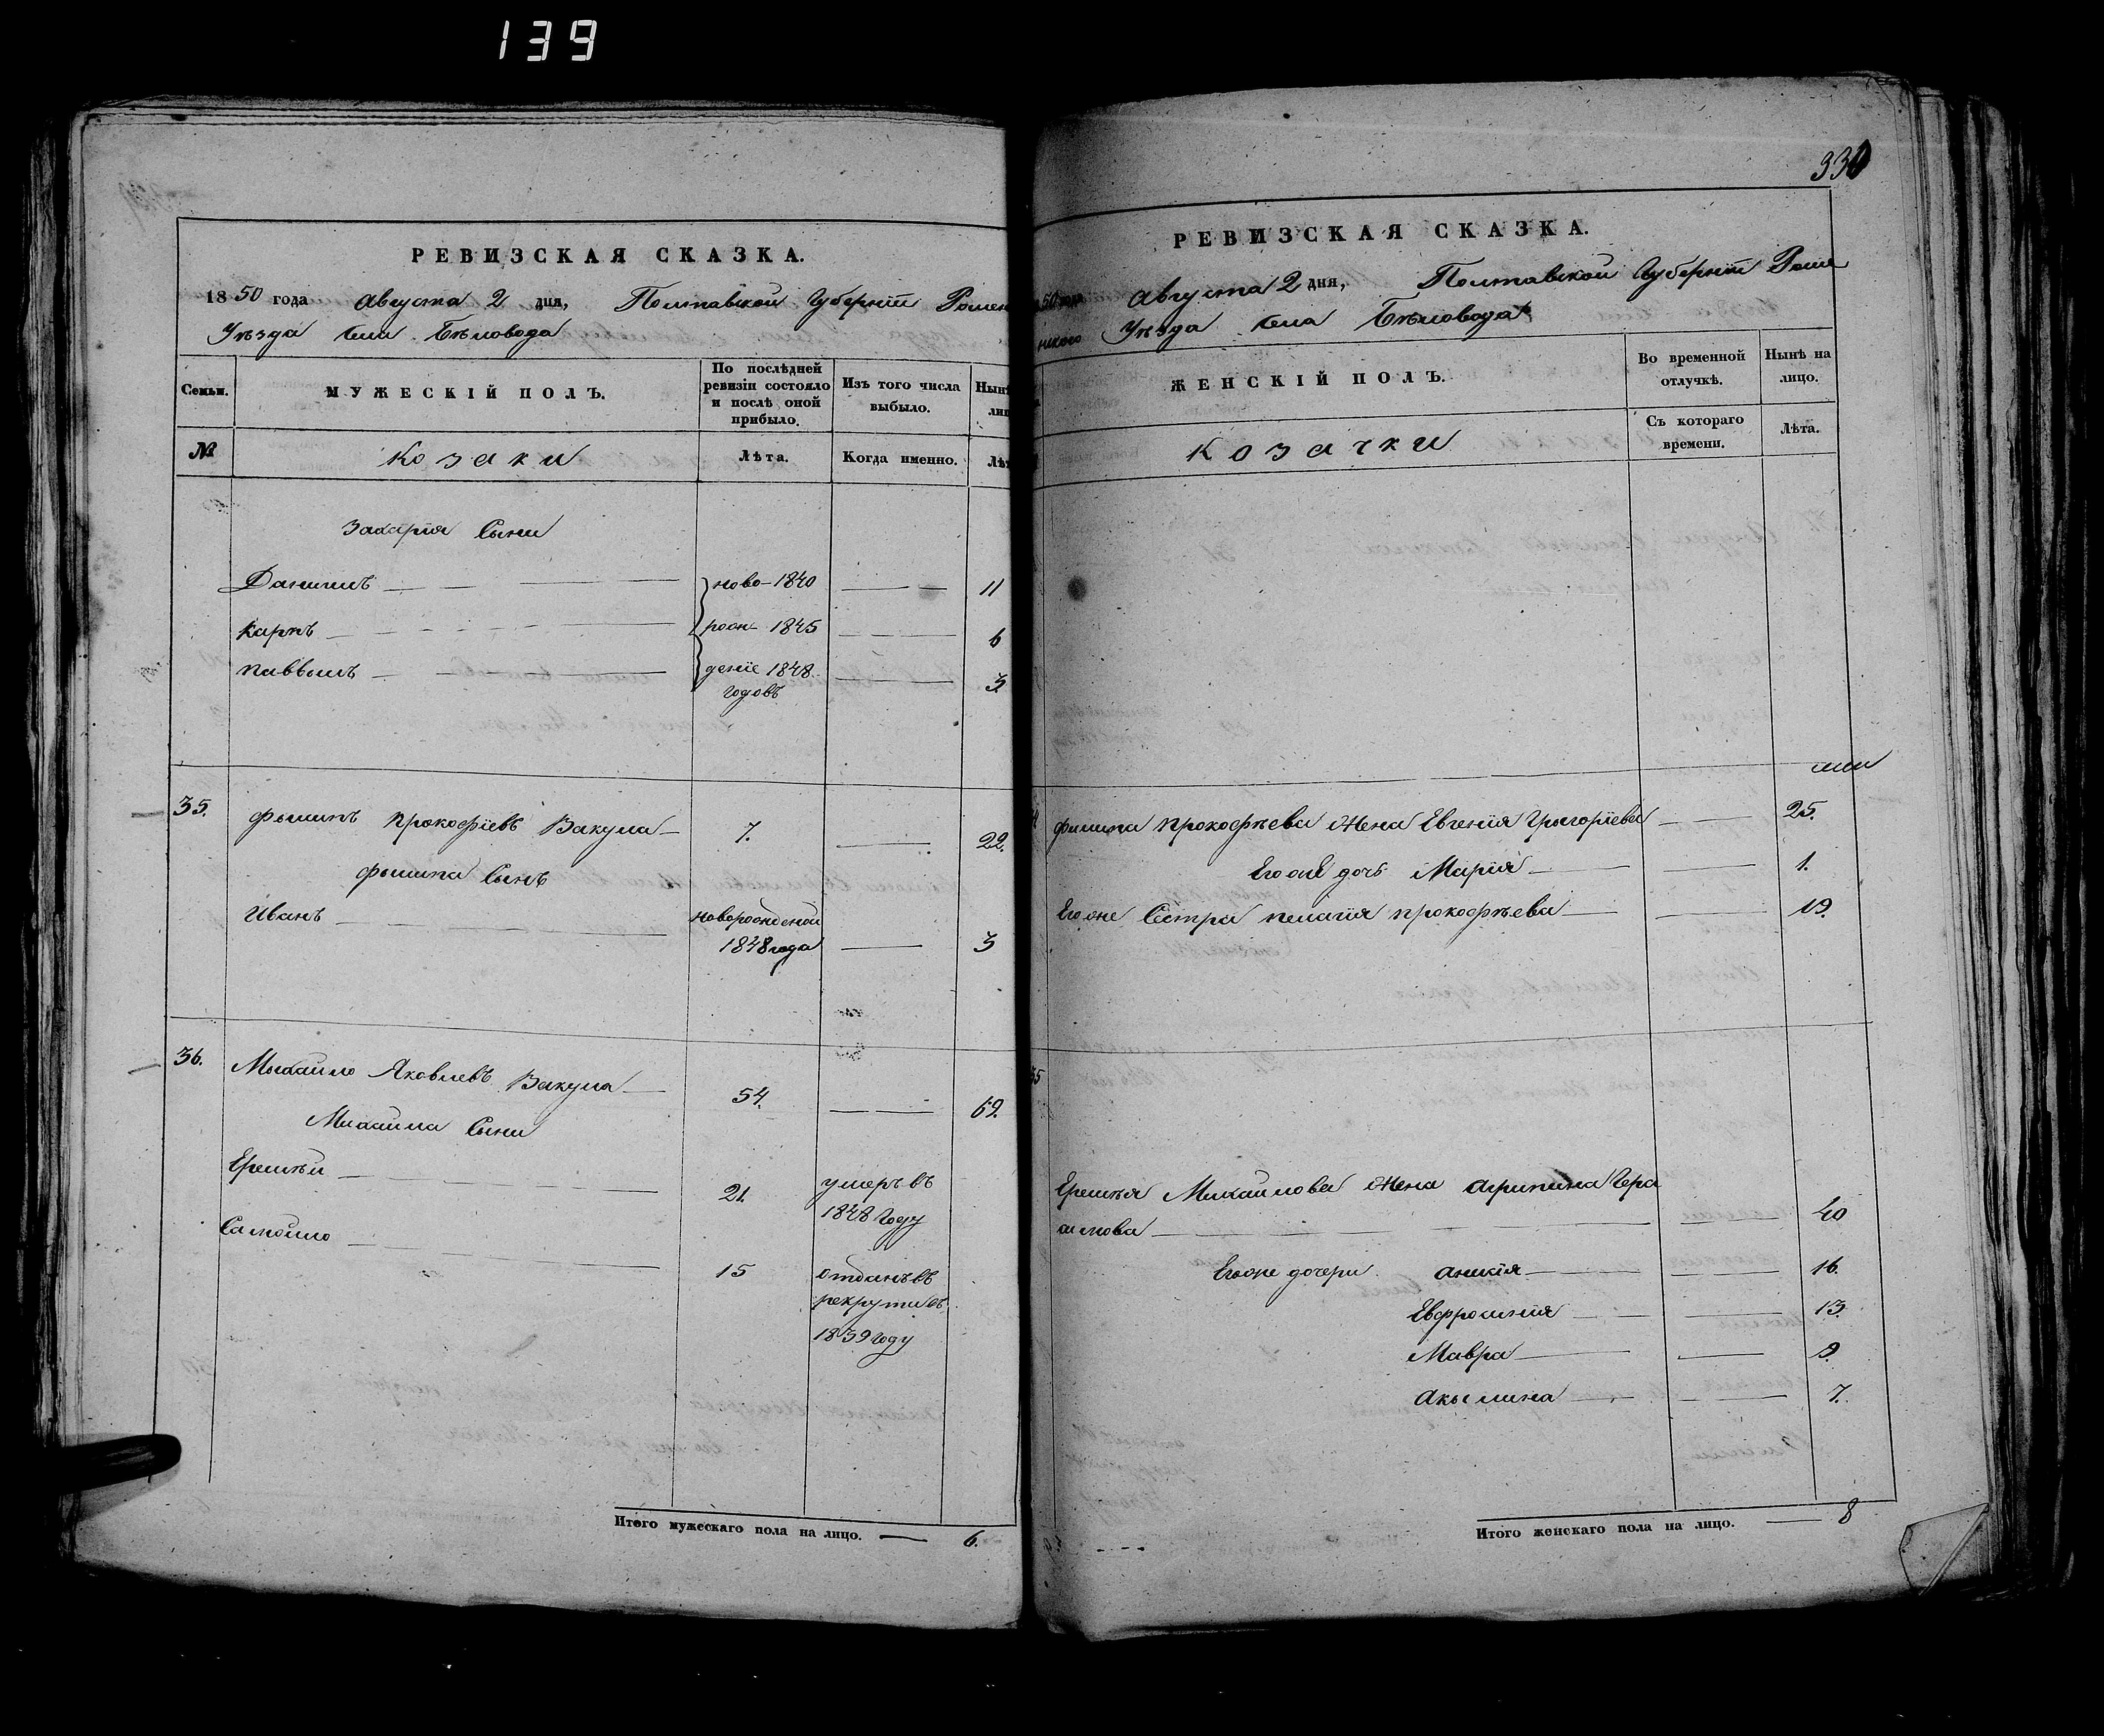 139
РЕВИЗСКАЯ СКАЗКА.
1850 года Августа 2 дня, Полтавской Губерніи Ромен
Уѣзда Села Бѣловода
Семьи.
МУЖЕСКІЙ ПОЛЪ.
По послѣдней
ревизіи состояло
и послѣ оной
прибыло.
Изъ того числа
выбыло.
Нынѣ
лиц
№
Козаки
Лѣта.
Когда именно.
Лѣт
Захарія Сыни
Данилъ ново- 1840 11
Карпъ рож- 1845 6
Паввылъ деніе 1848 3.
годовъ
35. Фылипъ Прокофіевъ Вакула 7. 22.
Фылипа Сынъ
Иванъ новорожденой
1848 года 3
36. Мыхаило Яковлевъ Вакула 54. 69.
Михаила Сыни
Еремѣй 21. умеръ въ
1848 Году
Самойло 15 Отданъ въ
рекруты въ
1839 Году
Итого мужескаго пола на лицо. 6.
330
РЕВИЗСКАЯ СКАЗКА.
50 года Августа 2 дня, Полтавской Губерніи Роме
нского Уѣзда Села Бѣловода
ЖЕНСКІЙ ПОЛЪ.
Во временной
отлучкѣ.
Нынѣ на
лицо.
Козачки
Съ котораго
времени.
Лѣта.
Филипа Прокофѣева Жена Евгенія Грыгоріева 25.
Егоже дочь Марія 1.
Егоже Сестра Пелагія Прокофѣева 19.
35
Еремѣя Михаилова Жена Агрипина Гера
симова 40
Егоже дочери Анисія 16.
Евфросинія 13.
Мавра 9.
Акылина 7.
Итого женскаго пола на лицо. 8